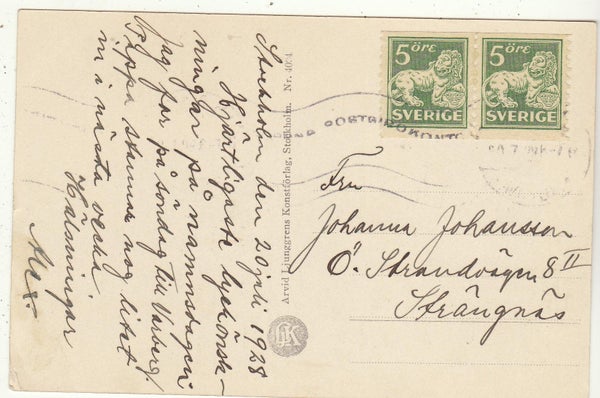 Stockholm den 20 juli 1928
Hjärtligaste lyckönsk-
ningar på namnsdagen
Jag far på söndag till Varberg,
stannar nog litet
in i nästa vecka.
Hälsningar
Arvid Ljunggrens Konstförlag, Stockholm. Nr. 404
5 ÖRE
SVERIGE
5 ÖRE
SVERIGE
POSTGIROKONTO
Fru
Johanna Johansson
Ö. Strandvägen 8 II
Strängnäs